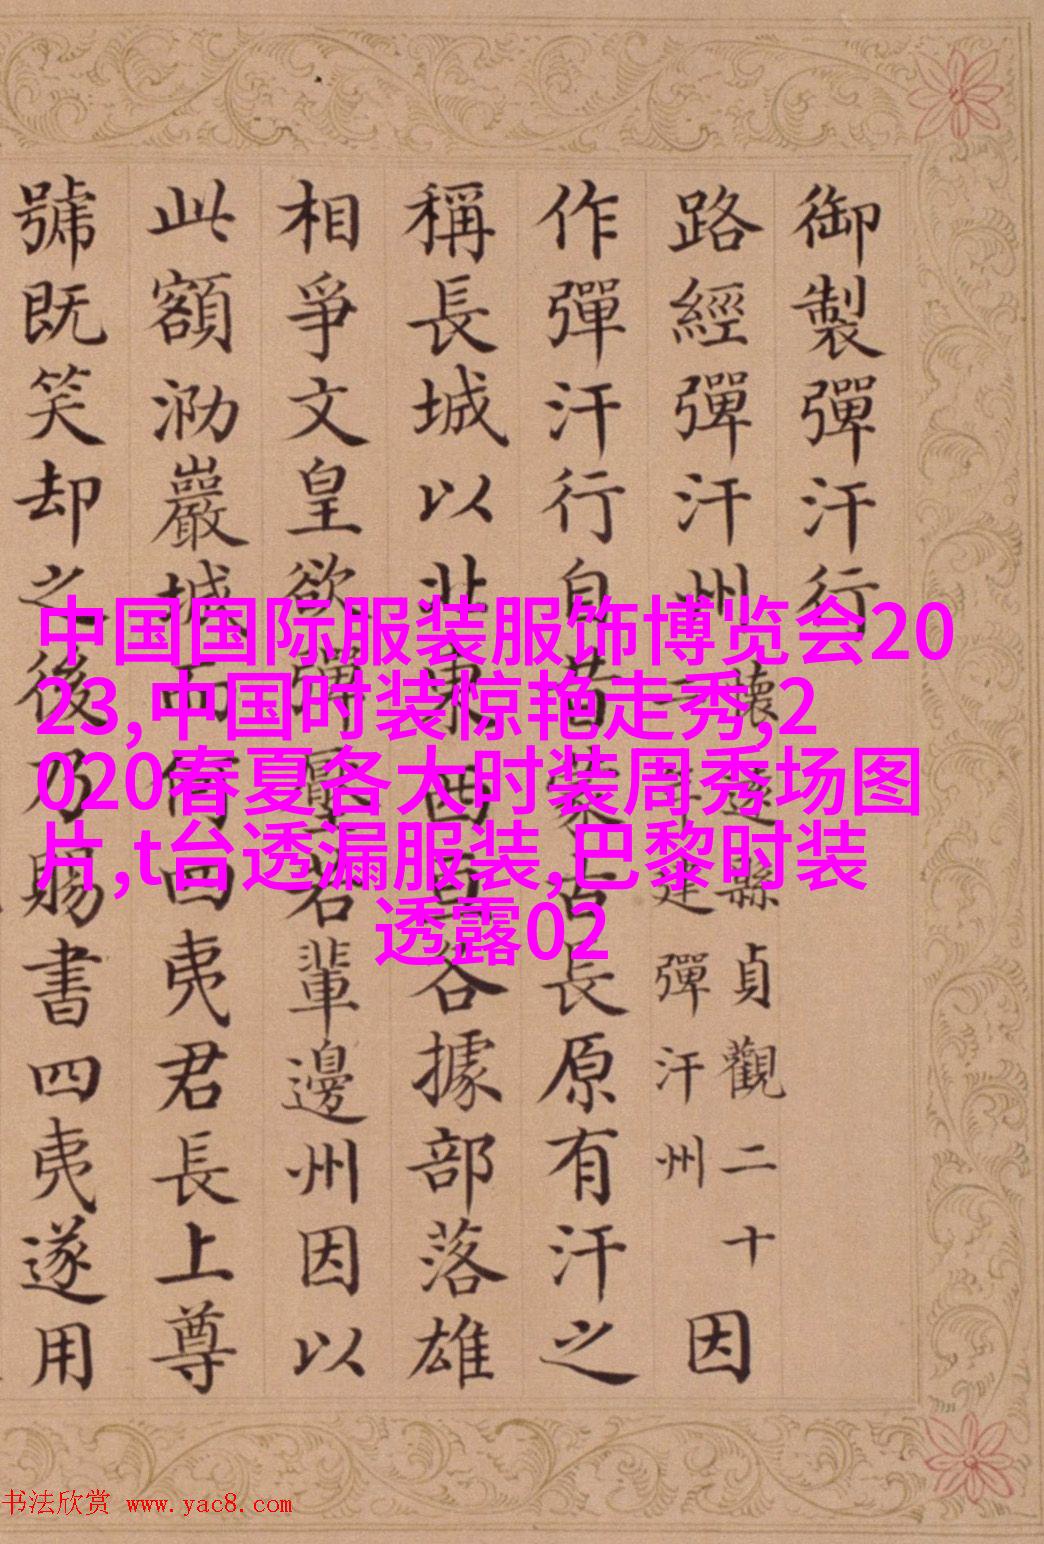 御製彈汗行
路經彈汗州
懷遠縣貞觀二十
一年建彈汗州
因
作彈汗行自昔蒙古長原有汗之
稱長城以北東西各據部落雄
相爭文皇欲彈壓若輩邊州因以
此額泐巖城而四夷君長上尊
號既笑却之後乃賜書四夷遂用
中国国际服装服饰博览会20
23,中国时装惊艳走秀,2
020春夏各大时装周秀场图
片,t台透漏服装,巴黎时装
透露02
书法欣赏 www.yac8.com